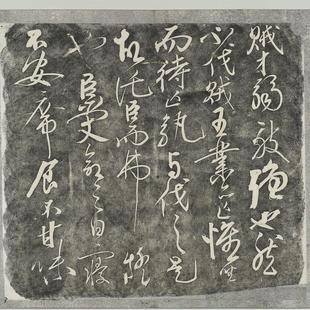 賊才弱敵強也然
不伐賊王業亦亡惟坐
而待亡孰与伐之是
故託臣而弗疑
也臣受命之日寢
不安席食不甘味